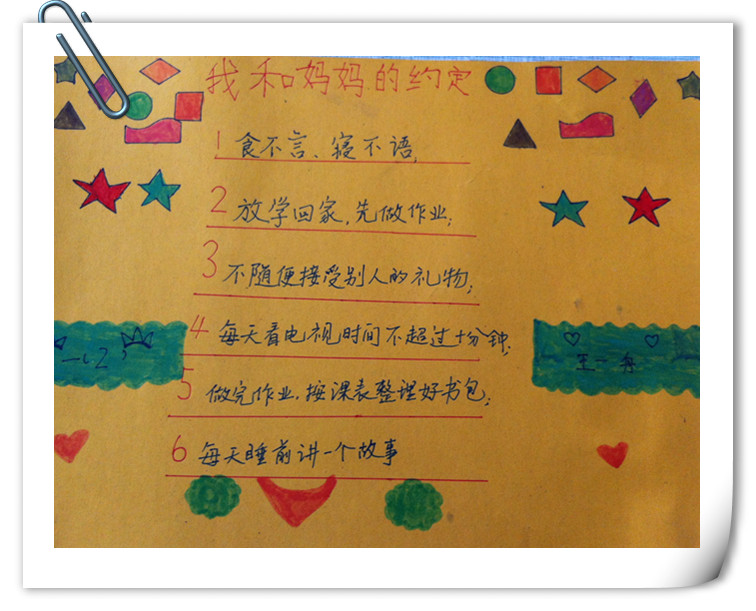 我和妈妈的约定
1 食不言、寝不语,
2 放学回家,先做作业;
3 不随便接受别人的礼物;
4 每天看电视时间不超过十分钟;
5 做完作业,按课表整理好书包;
6 每天睡前讲一个故事
王一舟